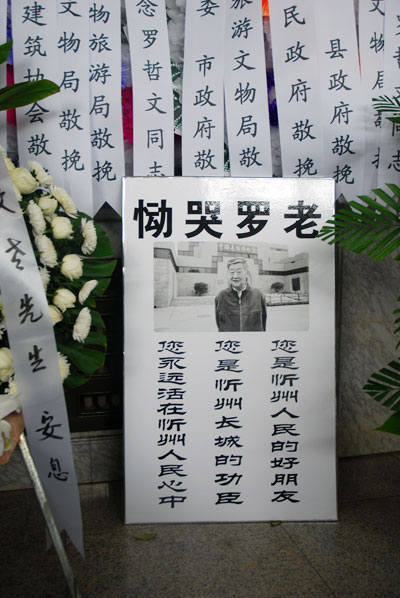 建筑协会敬
物旅游局敬挽
念罗哲文同志
委 市政府敬
旅游文物局敬
民政府敬
县政府敬挽
文物局敬挽
同志
恸哭罗老
您是忻州人民的好朋友
您是忻州长城的功臣
您永远活在忻州人民心中
先生 安息